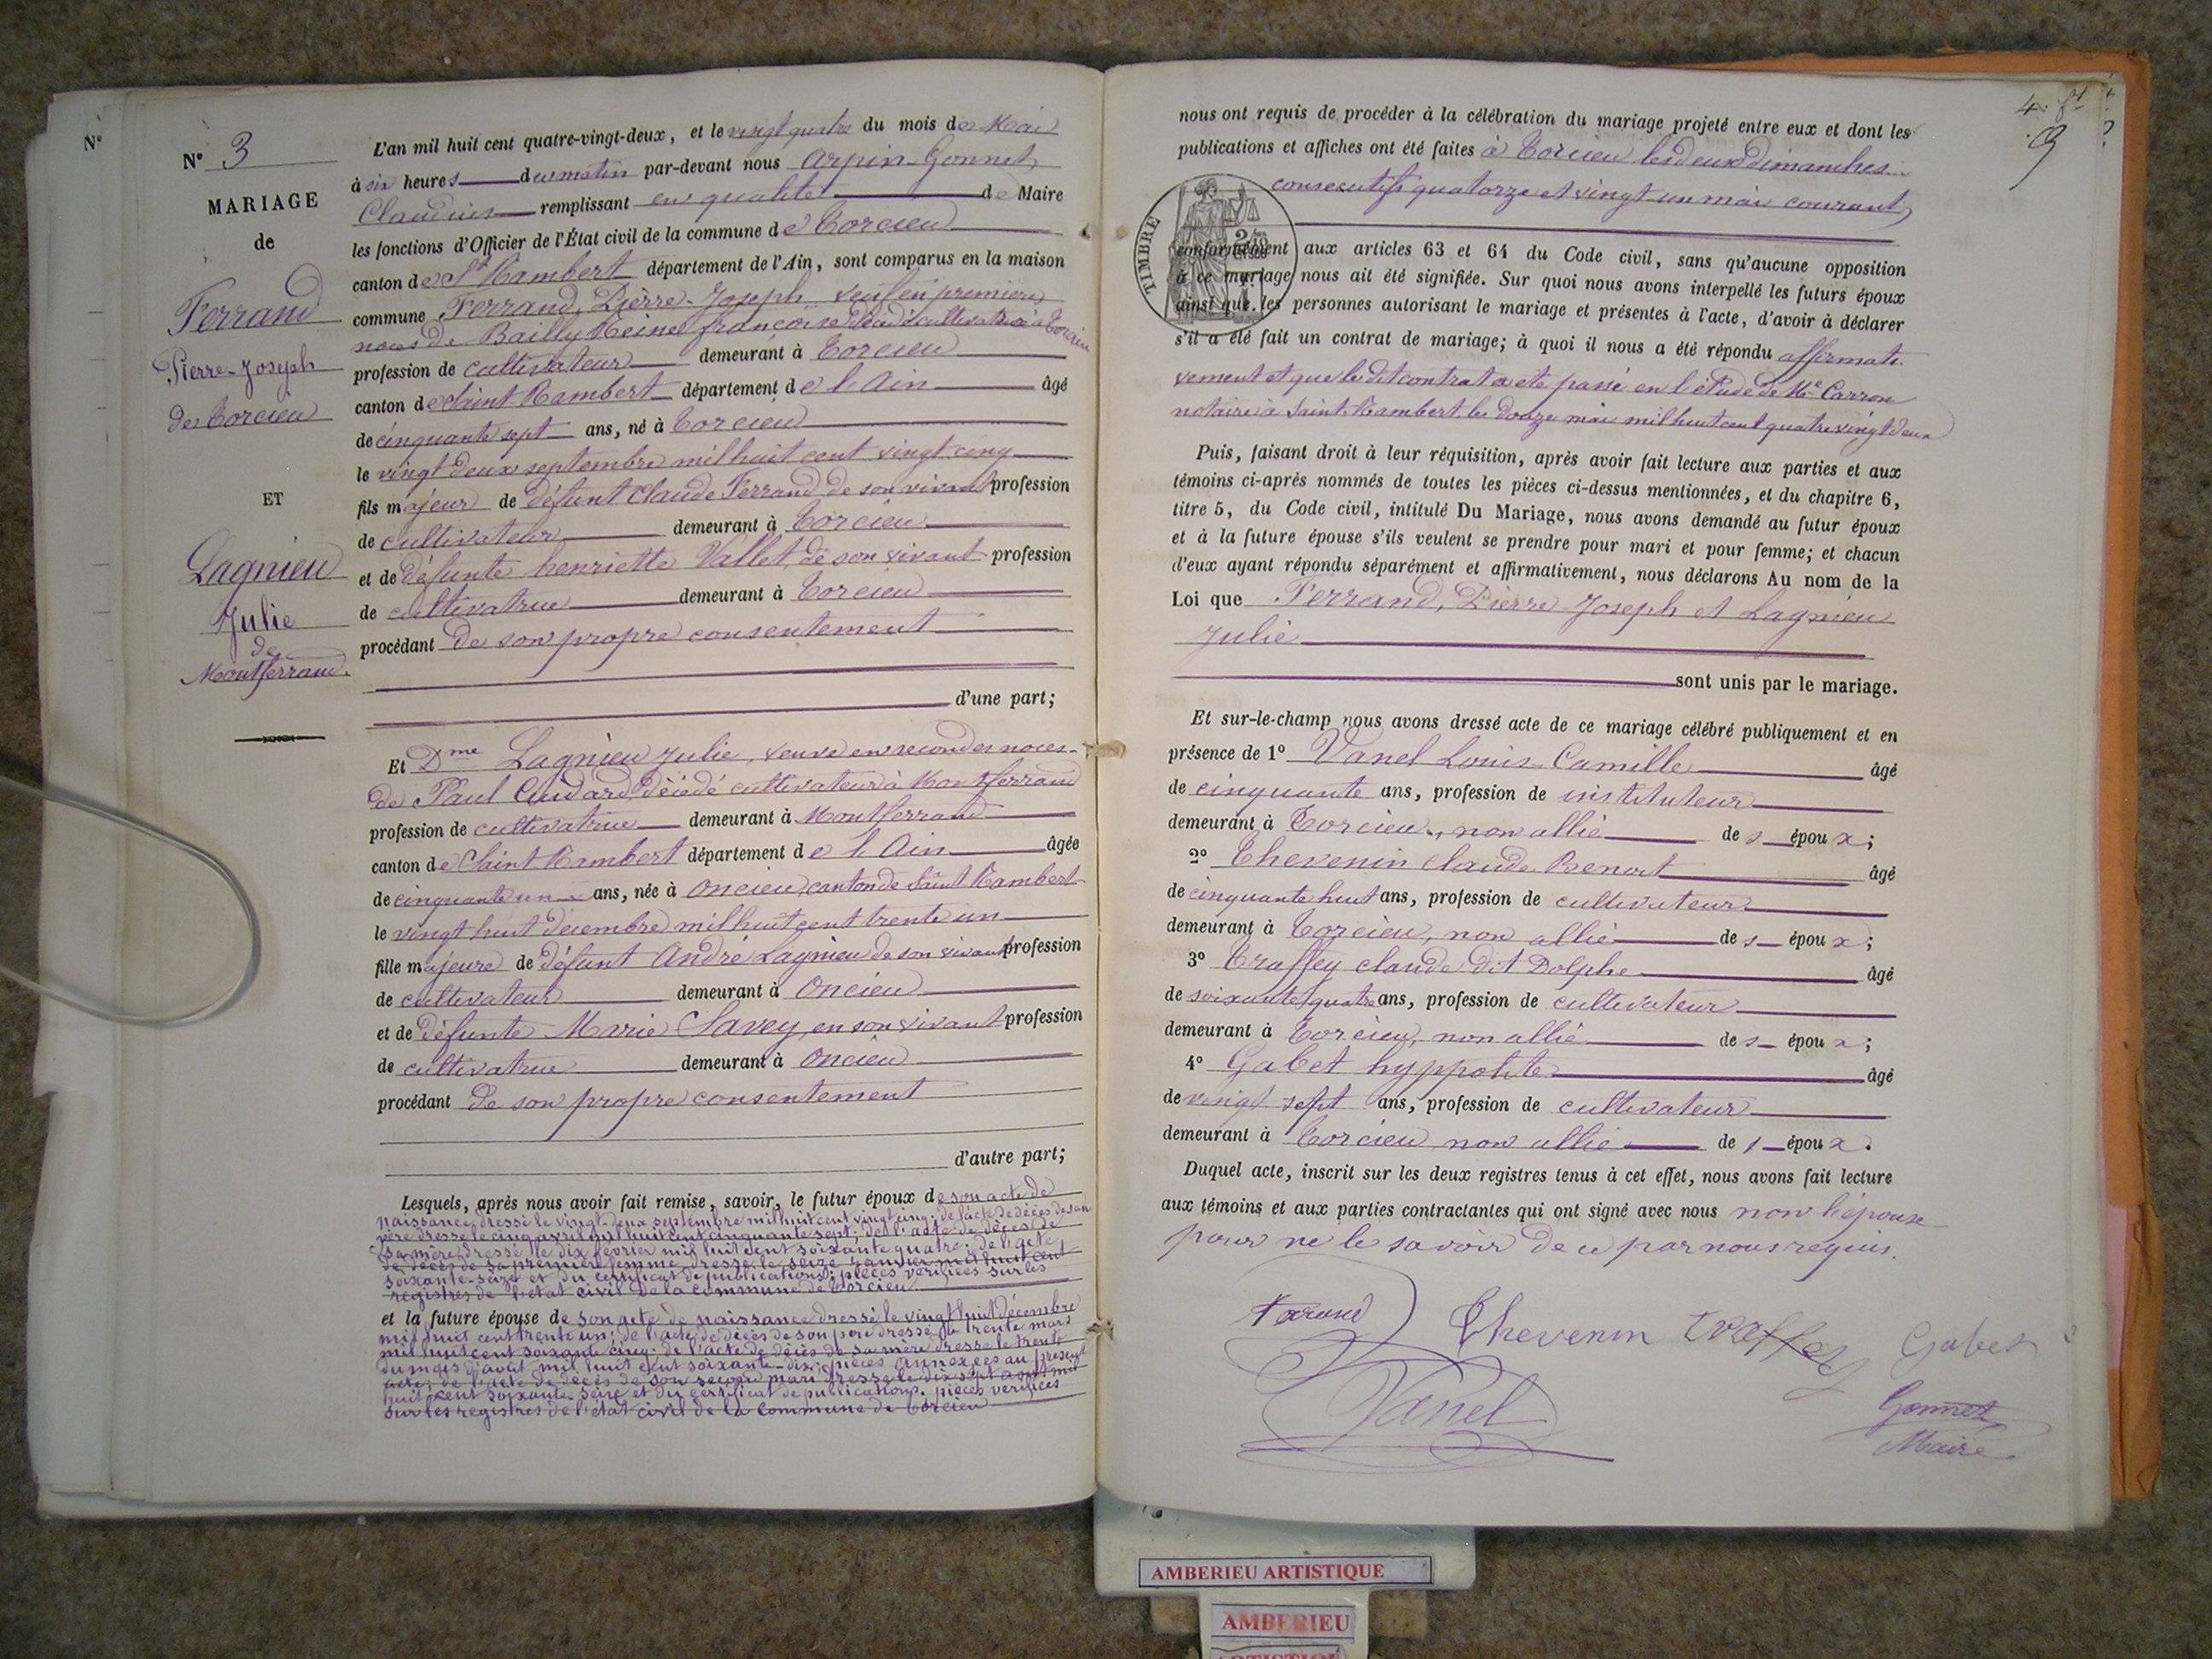 N°
N° 3
MARIAGE
de
Ferrand
Pierre-Joseph
de Torcieu
ET
Lagnieu
Julie
de
Montferrand.
L'an mil huit cent quatre-vingt-deux, et le vingt quatre du mois de Mai
à six heures du matin par-devant nous Arpin-Gonnet,
Claudius remplissant en qualité de Maire
les fonctions d'Officier de l'État civil de la commune de Torcieu
canton de St Rambert département de l'Ain, sont comparus en la maison
commune Ferrand, Pierre-Joseph, veuf en premieres
noces de Bailly Reine françoise cultivatrice à Torcieu
profession de cultivateur demeurant à Torcieu
canton de Saint-Rambert département de l'Ain âgé
de cinquante sept ans, né à Torcieu
le vingt deux septembre mil huit cent vingt cinq
fils majeur de défunt Claude Ferrand de son vivant profession
de cultivateur demeurant à Torcieu
et de défunte henriette Vallet, de son vivant profession
de cultivatrice demeurant à Torcieu
procédant de son propre consentement
d'une part;
Et Dme Lagnieu Julie, veuve en secondes noces
de Paul Cudard décédé cultivateur à Montferrand
profession de cultivatrice demeurant à Montferrand
canton de Saint Rambert département de l'Ain âgée
de cinquante un ans, née à Oncieu, canton de Saint Rambert
le vingt huit décembre mil huit cent trente un
fille majeure de défunt André Lagnieu de son vivant profession
de cultivateur demeurant à Oncieu
et de défunte Marie Savey, en son vivant profession
de cultivatrice demeurant à Oncieu
procédant de son propre consentement
d'autre part;
Lesquels, après nous avoir fait remise, savoir, le futur époux de son acte de
naissance dressé le vingt-deux septembre mil huit cent vingt cinq; de l'acte de décès de son
père dressé le cinq avril mil huit cent cinquante sept; de l'acte de décès de
sa mère dressé le dix février mil huit cent soixante quatre; de l'acte
de décès de sa première femme dressé le seize janvier mil huit cent
soixante-seize et du certificat de publications; pièces vérifiées sur les
registres de l'état civil de la commune de Torcieu
et la future épouse de son acte de naissance dressé le vingt huit décembre
mil huit cent trente un; de l'acte de décès de son père dressé le trente mars
mil huit cent soixante cinq; de l'acte de décès de sa mère dressé le trente
du mois d'août mil huit cent soixante-dix; pièces annexées au présent
acte; de l'acte de décès de son second mari dressé le dix sept août mil
huit cent soixante-seize et du certificat de publications. pièces vérifiées
sur les registres de l'état civil de la commune de Torcieu
4
9
nous ont requis de procéder à la célébration du mariage projeté entre eux et dont les
publications et affiches ont été faites à Torcieu les deux dimanches
consecutifs quatorze et vingt un mai courant,
TIMBRE
conformément aux articles 63 et 64 du Code civil, sans qu'aucune opposition
à ce mariage nous ait été signifiée. Sur quoi nous avons interpellé les futurs époux
ainsi que les personnes autorisant le mariage et présentes à l'acte, d'avoir à déclarer
s'il a été fait un contrat de mariage; à quoi il nous a été répondu affirmati
vement et que le dit contrat a été passé en l'étude de Me Carron
notaire à Saint-Rambert le douze mai mil huit cent quatre vingt deux
Puis, faisant droit à leur réquisition, après avoir fait lecture aux parties et aux
témoins ci-après nommés de toutes les pièces ci-dessus mentionnées, et du chapitre 6,
titre 5, du Code civil, intitulé Du Mariage, nous avons demandé au futur époux
et à la future épouse s'ils veulent se prendre pour mari et pour femme; et chacun
d'eux ayant répondu séparément et affirmativement, nous déclarons Au nom de la
Loi que Ferrand, Pierre-Joseph et Lagnieu
Julie
sont unis par le mariage.
Et sur-le-champ nous avons dressé acte de ce mariage célébré publiquement et en
présence de 1° Vanel Louis-Camille âgé
de cinquante ans, profession de instituteur
demeurant à Torcieu, non allié des époux;
2° Thevenin Claude Benoit âgé
de cinquante huit ans, profession de cultivateur
demeurant à Torcieu, non allié des époux;
3° Traffey claude dit Dolphe âgé
de soixante quatre ans, profession de cultivateur
demeurant à Torcieu, non allié des époux;
4° Gabet hyppolite âgé
de vingt sept ans, profession de cultivateur
demeurant à Torcieu non allié des époux.
Duquel acte, inscrit sur les deux registres tenus à cet effet, nous avons fait lecture
aux témoins et aux parties contractantes qui ont signé avec nous non l'épouse
pour ne le savoir de ce par nous requis.
Ferrand Thevenin Traffey Gabet
Vanel
Gonnet
Maire
AMBERIEU ARTISTIQUE
AMBERIEU
ARTISTIQUE